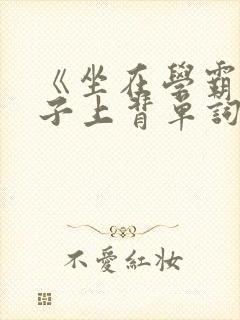 《坐在學霸
子上背單詞
不愛紅妝